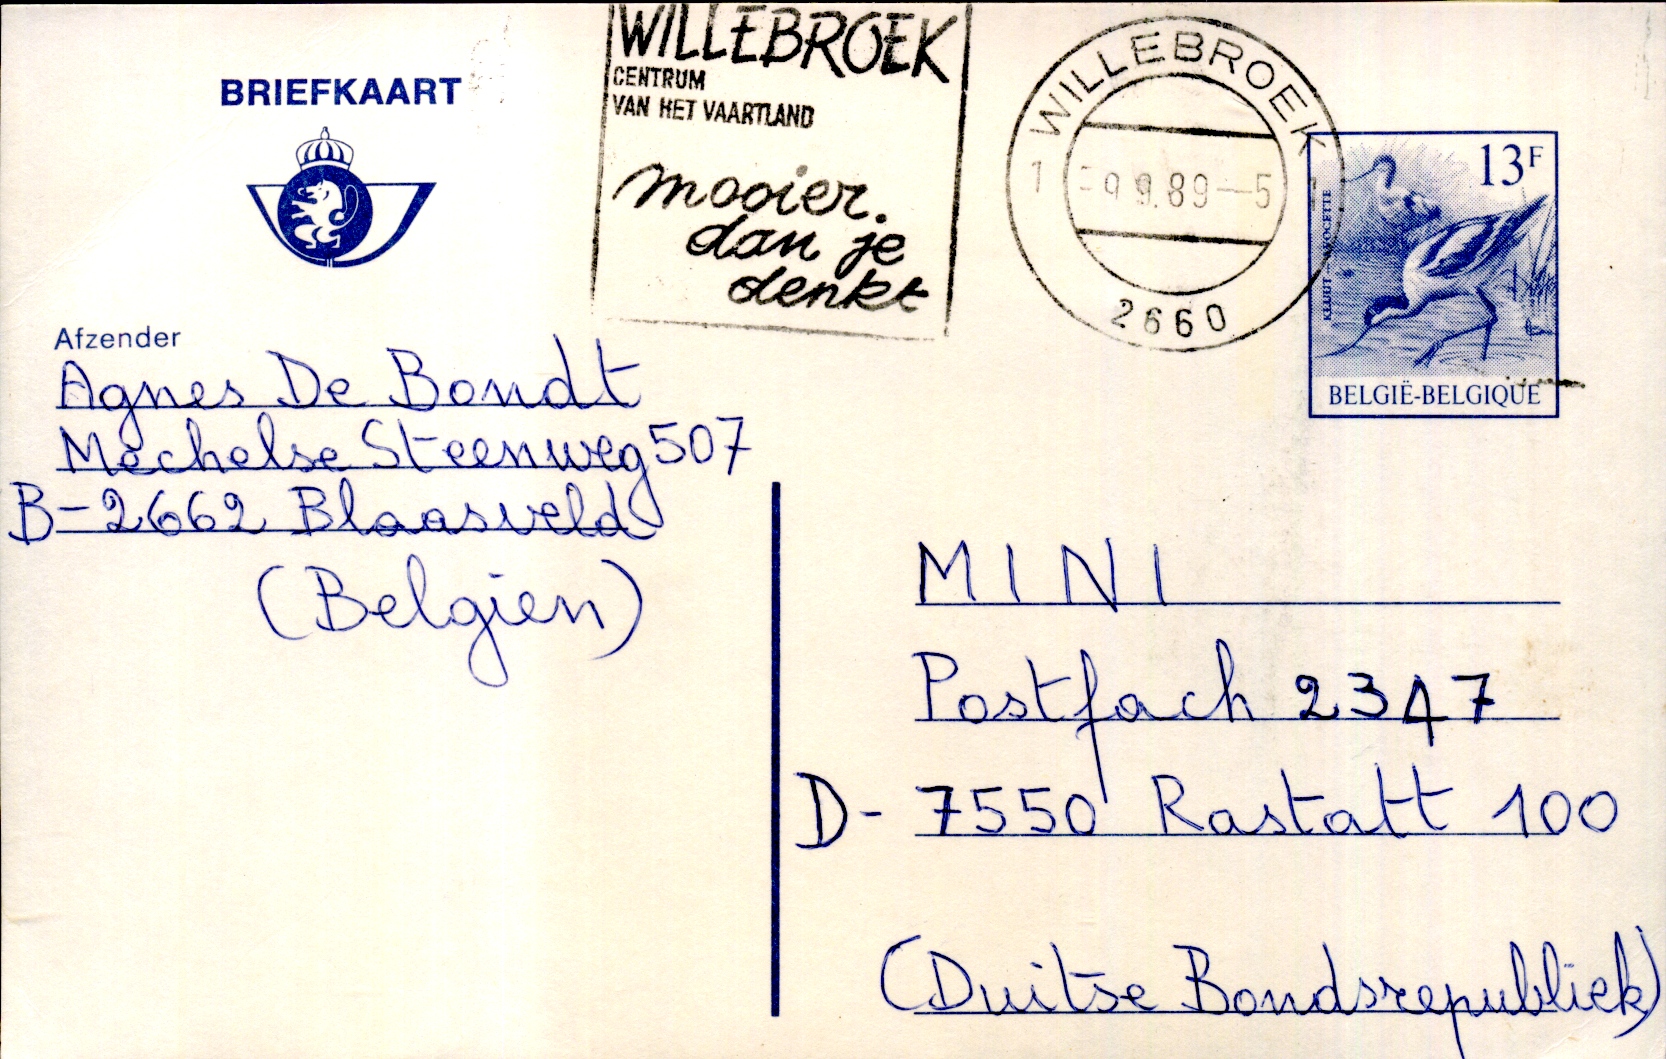 BRIEFKAART
WILLEBROEK
CENTRUM
VAN HET VAARTLAND
mooier.
dan je
denkt
WILLEBROEK
1 -9.9.89-5
2660
13F
KLUUT - AVOCETTE
BELGIË-BELGIQUE
Afzender
Agnes De Bondt
Mechelse Steenweg 507
B-2662 Blaasveld
(Belgien)
MINI
Postfach 2347
D- 7550 Rastatt 100
(Duitse Bondsrepubliek)